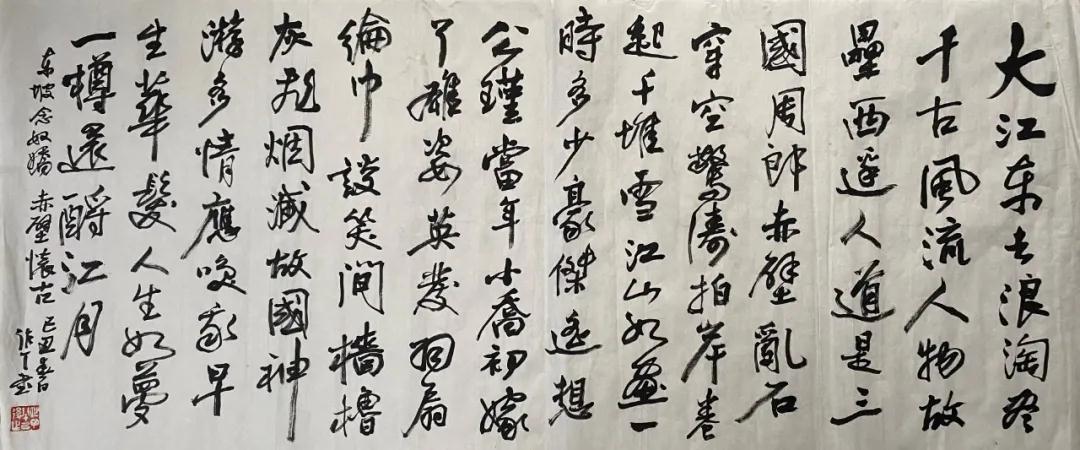 大江东去浪淘尽
千古風流人物故
壘西邊人道是三
國周郎赤壁亂石
穿空驚濤拍岸卷
起千堆雪江山如畫一
時多少豪傑遙想
公瑾當年小喬初嫁
了雄姿英發羽扇
綸巾談笑間檣櫓
灰飛烟滅故國神
游多情應笑我早
生華髮人生如夢
一樽還酹江月
东坡念奴嬌赤壁懷古